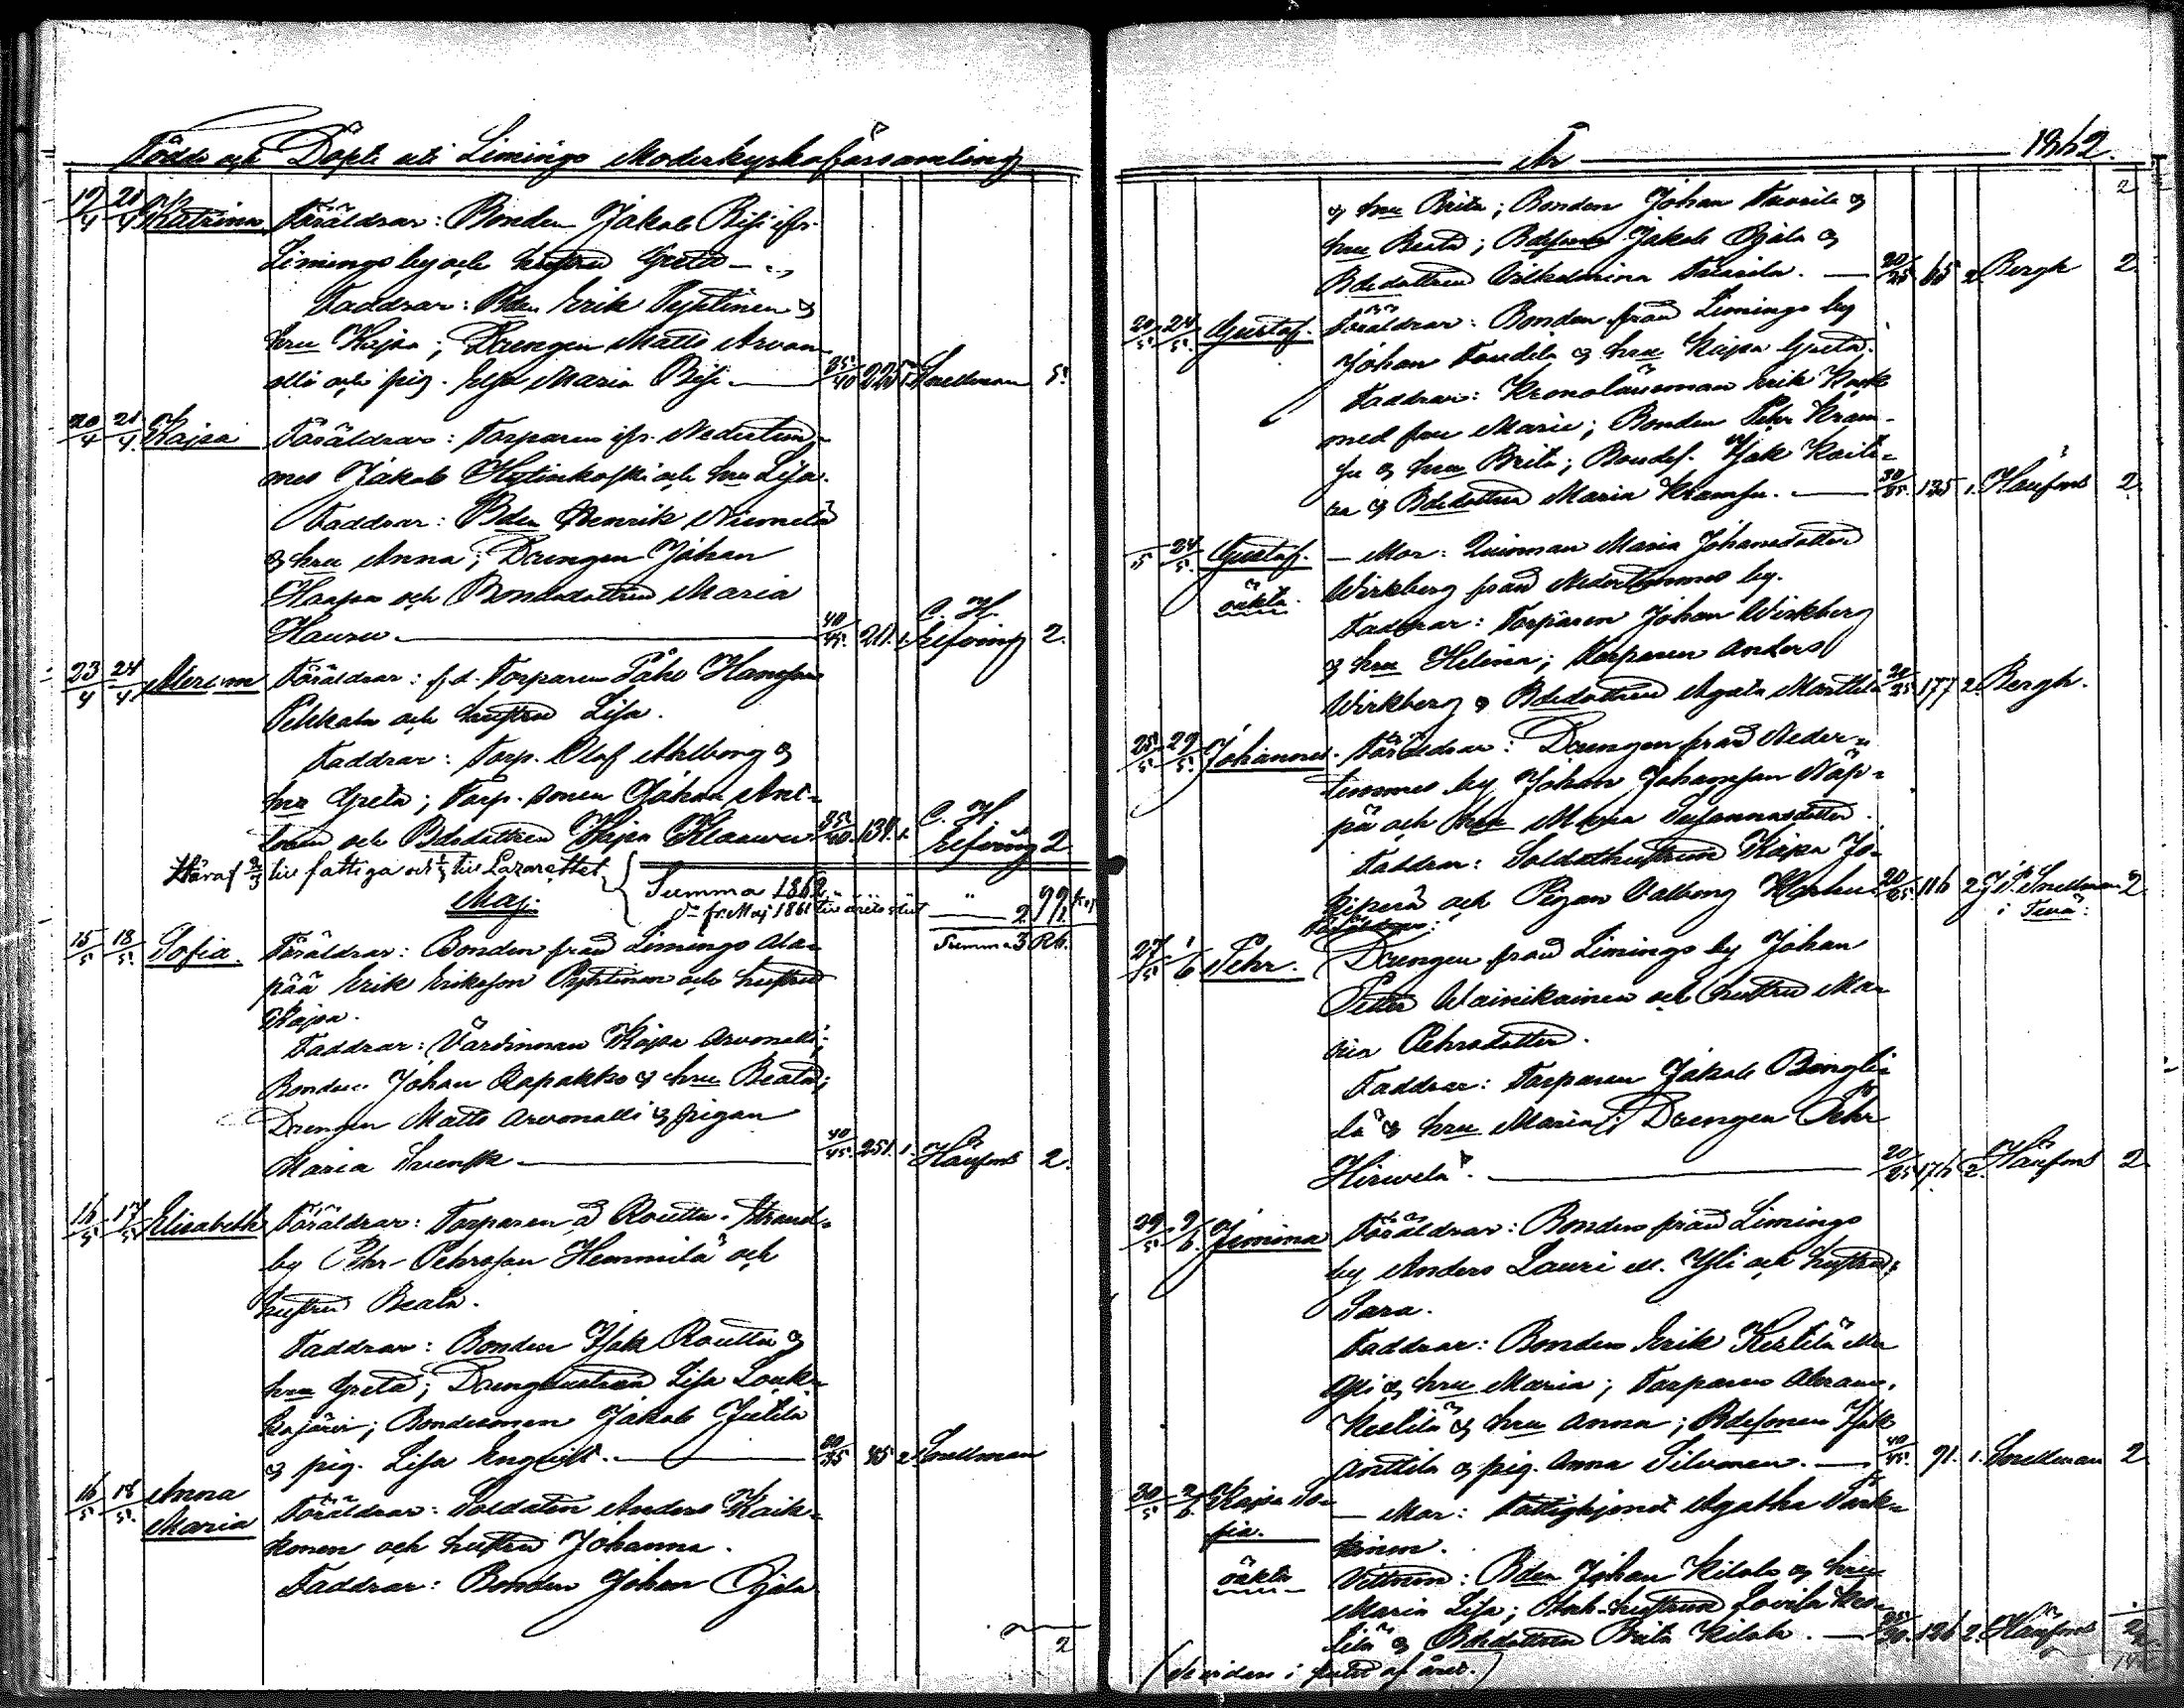 Födde och Döpte uti Limingo Moderkyrkoförsamling
19/4 21/4 Katrina Föräldrar: Bonden Jakob
Limingo by och hustru Greta
Faddrar: Bden Erik Pyhtinen &
hru Kajsa; Drengen Matts Arvon-
olli och pig. Maria 35/40 225 1. Snellman 5.
20/4 21/4 Kajsa Föräldrar: Torparen ifr. Nedertem-
mes Jakob Hytinkoski och hru Lisa.
Faddrar: Bden Henrik Niemelä
& hru Anna; Drengen Johan
Haapa och Bondedottren Maria C. H.
Hauru 40/45. 211. 1. Elfving 2.
23/4 24/4 Föräldrar: f.d. Torparen Påhl Hansson
Pekkala och hustru Lisa.
Faddrar: Torp. Olof Ahlbong &
hru Greta; Torp. sonen Johan Ant- C. H.
och Bdedottren Kajsa 35/40. 139. 1. Elfving 2.
Häraf 2/3 till fattiga och 1/3 till Lazarettet Summa 1862
Maj. d:o fr. Maj 1861 till årets slut 2. 99 kop
Summa 3 Rb.
15/5 18/5. Sofia. Föräldrar: Bonden från Limingo Ala-
pää Erik Eriksson Pyhtinen och hustru
Kajsa.
Faddrar: Värdinnan Kajsa Arvonolli;
Bonden Johan Rapakko & hru Beata;
Drengen Matts Arvonolli & pigan
Maria Svensk 40/45. 251. 1. Häufors 2.
16/5 17/5 Elisabeth Föräldrar: Torparen å Routtu. Strand-
by Pehr Pehrsson Hemmilä och
hustru Beata.
Faddrar: Bonden Isak Routtu &
hru Greta; Drenghustrun Lisa Louk-
kojärvi; Bondesonen Jakob Juttila
& pig. Lisa Engqvist. 30/35 45 2. Snellman
16/5 18/5. Anna Föräldrar: Soldaten Anders Kaik-
Maria konen och hustru Johanna.
Faddrar: Bonden Johan Ojala
2
År 1862.
2
& hru Brita; Bonden Johan Tuorila &
hru Beata; Bdesonen Jakob Ojala &
Bdedottren Vilhelmina Tuorila. 20/25 65 2. Bergh 2
20/5 24/5. Gustaf. Föräldrar: Bonden från Limingo by
Johan Taudila & hru Kajsa Greta.
Faddrar: Kronolänsman Erik
med fru Maria; Bonden Pehr Kram-
su & hru Brita; Bondes. Isak Koite-
& Bdedottren Maria Kramsu. 30/35. 135 1. Häufors 2.
/5 24/5. Gustaf. — Mor: Qvinnan Maria Johansdotter
oäkta. Wirkberg från Nedertemmes by.
Faddrar: Torparen Johan Wirkberg
& hru Helena; Torparen Anders
Wirkberg & Bdedottren Agata Marttila 20/25. 177 2. Bergh.
25/5 29/5. Johannes. Föräldrar: Drengen från Neder-
temmes by Johan Johansson Näp-
pä och hru Maria Susannasdotter.
Faddrar: Soldathustrun Kajsa Jo-
och Pigan Valborg 20/25. 116 2. J. F. Snellman 2
i Tevä.
Föräldrar:
27/5 1/6 Pehr. Drengen från Limingo by Johan
Petter Wainikainen och hustru Ma-
ria Pehrsdotter.
Faddrar: Torparen Jakob
lä & hru Maria; Drengen Pehr
Hirvelä. 20/25 176 2. Häufors 2.
29/5 9/6. Jemina Föräldrar: Bonden från Limingo
by Anders Lauri ell. Yli och hustru
Sara.
Faddrar: Bonden Erik Kestilä eller
Yli & hru Maria; Torparen Abram.
Kestilä & hru Anna; Bdesonen Isak
Anttila & pig. Anna Silvonen. 40/45. 91. 1. Snellman 2.
30/5 2/6 Kajsa So- — Mor: Fattighjonet Agatha Tark-
fia. kinen.
oäkta Vittnen: Bden Johan Kilola & hru
Maria Lisa; Lovisa Kes-
tilä & Bdedottren Brita Kilola. 126 2. Häufors 2.
(Se vidare i slutet af året.)